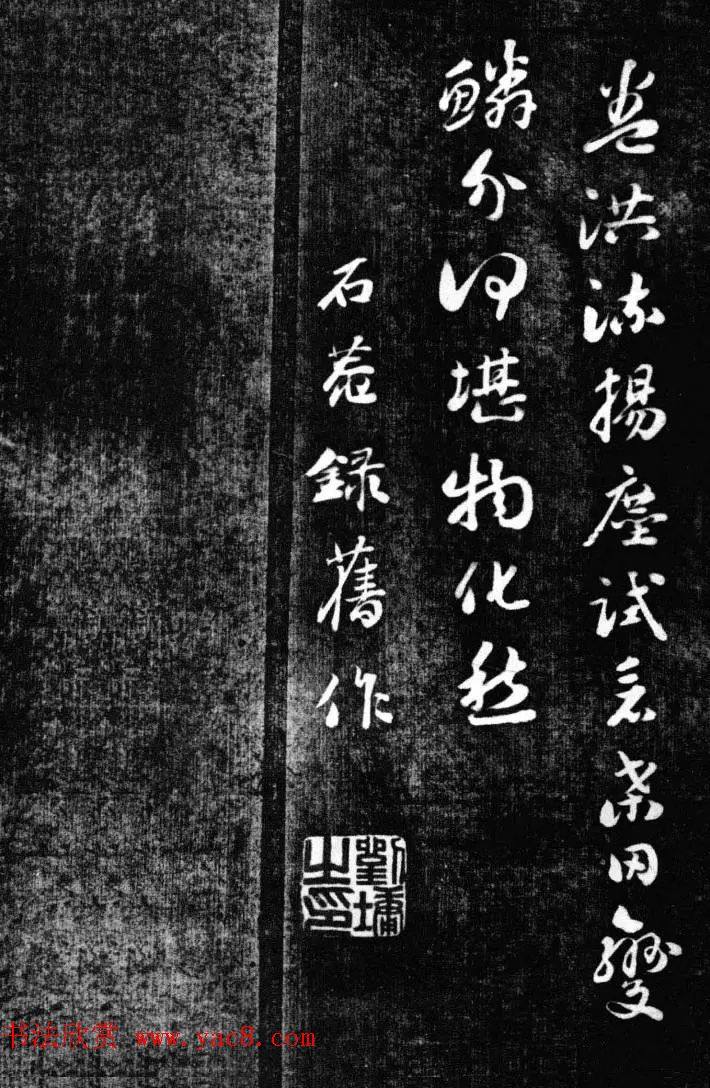 洪流揚塵試桑田變
鱗介何堪物化愁
石菴録舊作
劉墉之印
书法欣赏 www.yac8.com